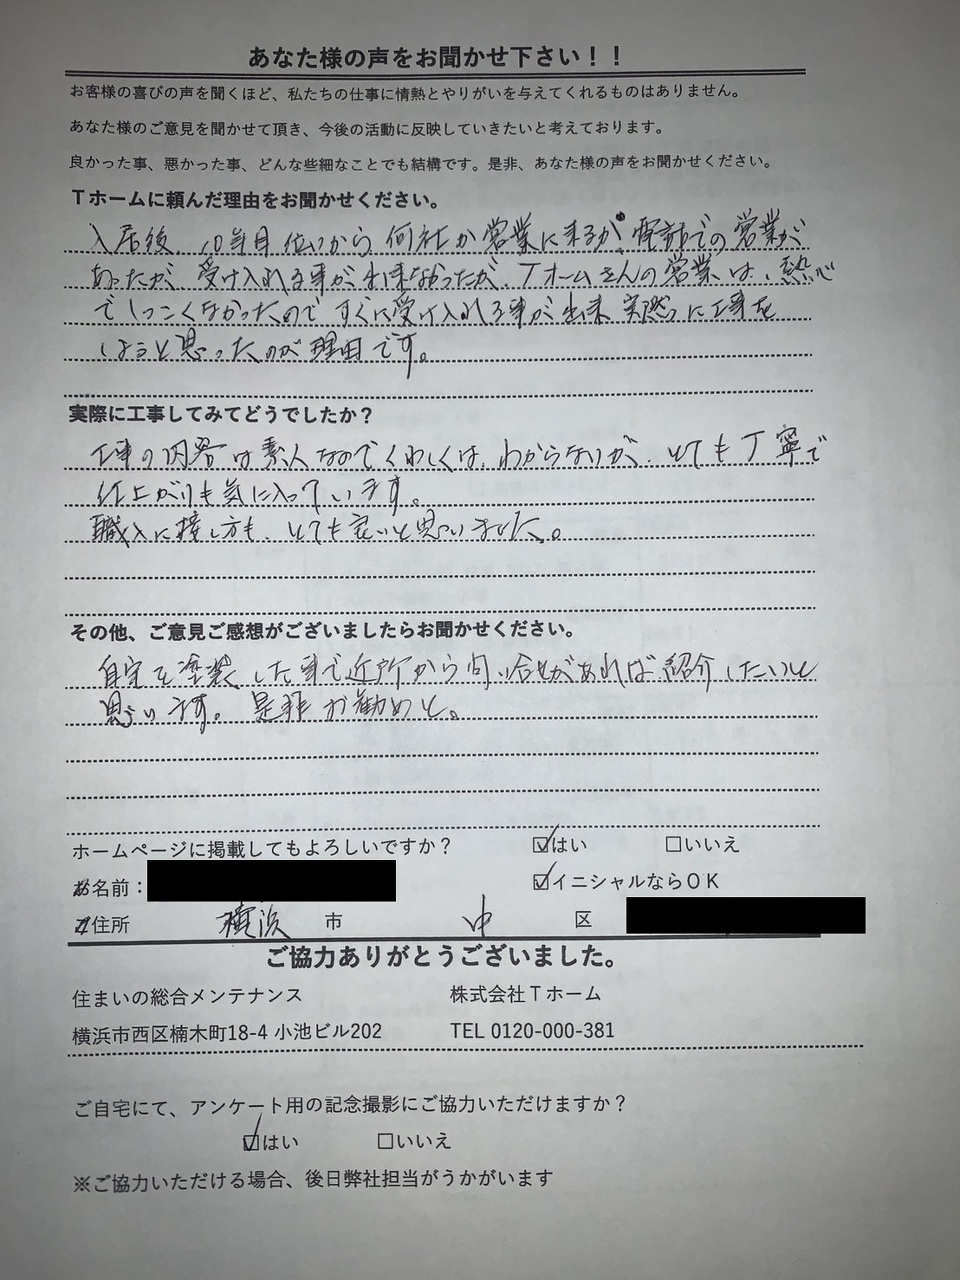 あなた様の声をお聞かせ下さい！！
お客様の喜びの声を聞くほど、私たちの仕事に情熱とやりがいを与えてくれるものはありません。
あなた様のご意見を聞かせて頂き、今後の活動に反映していきたいと考えております。
良かった事、悪かった事、どんな些細なことでも結構です。是非、あなた様の声をお聞かせください。
Tホームに頼んだ理由をお聞かせください。
入居後、10年目位から何社か営業に来るが、電話での営業が
あったが、受け入れる事が出来なかったが、Tホームさんの営業は、熱心
でしつこくなかったのですぐに受け入れる事が出来 実際に工事を
しようと思ったのが理由です。
実際に工事してみてどうでしたか？
工事の内容は素人なのでくわしくは、わからないが、とても丁寧で
仕上がりも気に入っています。
職人に接し方も、とても良いと思いました。
その他、ご意見ご感想がございましたらお聞かせください。
自宅を塗装した事で近所から問い合せがあれば紹介したいと
思います。是非お勧めと。
ホームページに掲載してもよろしいですか？ ☑はい □いいえ
お名前： ☑イニシャルならOK
ご住所 横浜 市 中 区
ご協力ありがとうございました。
住まいの総合メンテナンス 株式会社Tホーム
横浜市西区楠木町18-4 小池ビル202 TEL 0120-000-381
ご自宅にて、アンケート用の記念撮影にご協力いただけますか？
☑はい □いいえ
※ご協力いただける場合、後日弊社担当がうかがいます